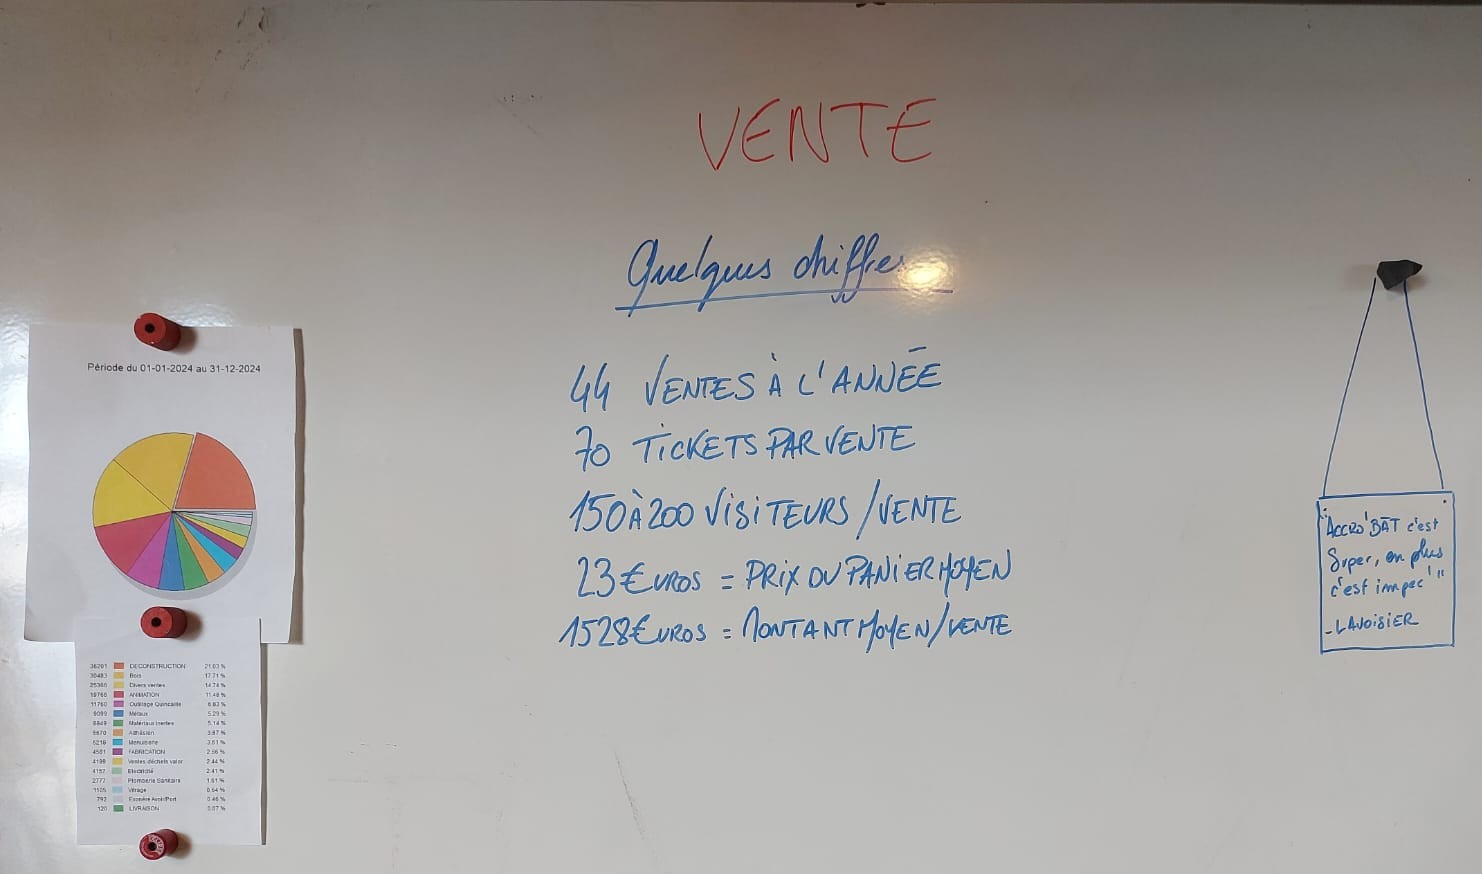 VENTE
Quelques chiffres
44 VENTES À L'ANNÉE
70 TICKETS PAR VENTE
150 À 200 VISITEURS / VENTE
23 € UROS = PRIX DU PANIER MOYEN
1528 € UROS = MONTANT MOYEN / VENTE
Période du 01-01-2024 au 31-12-2024
36201 DECONSTRUCTION 21.03 %
30483 Bois 17.71 %
Divers ventes 14.74 %
19766 ANIMATION 11.48 %
11760 Outillage Quincaille 6.83 %
9099 Métaux 5.29 %
8849 Matériaux inertes 5.14 %
Adhésion
Menuiserie
4581 FABRICATION
Ventes déchets valor 2.44 %
4157 Electricité 2.41 %
2777 Plomberie Sanitaire 1.61 %
1105 Vitrage 0.64 %
792 0.46 %
120 LIVRAISON 0.07 %
"ACCRO'BÂT c'est
Super, en plus
c'est impec'"
- LAVOISIER